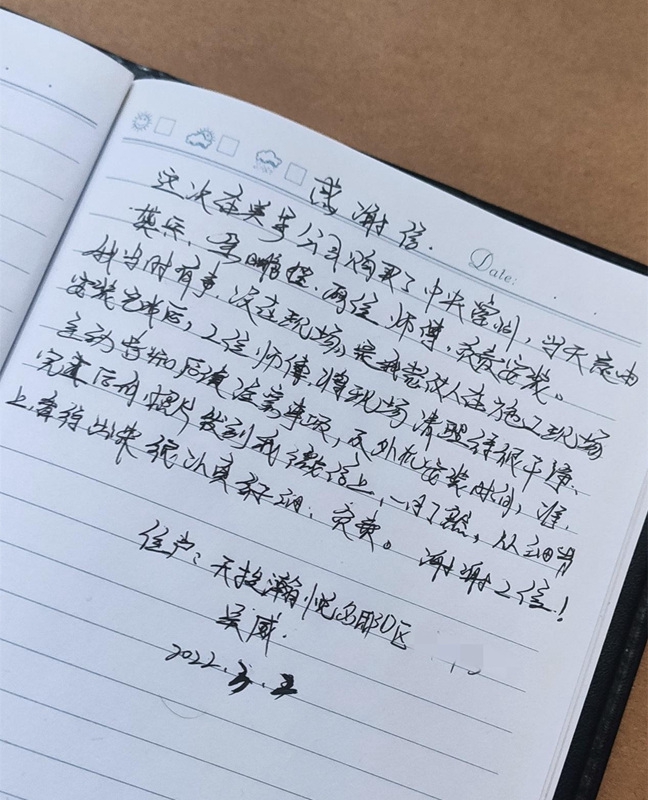 感谢信.
Date:
这次在美芳公司购买了中央空调,当天是由
英兵、鹏程.两位师傅,负责安装。
我当时有事,没在现场,是我家人在施工现场
安装完成后,2位师傅,将现场清理得很干净、
主动告知后续注意事项,及外机安装时间,准.
完美后的照片发到我微信上,一目了然,从细节
上.看得出来很认真仔细、负责。谢谢2位!
住户:天投瀚悦名邸D区
吴威.
2022.3.